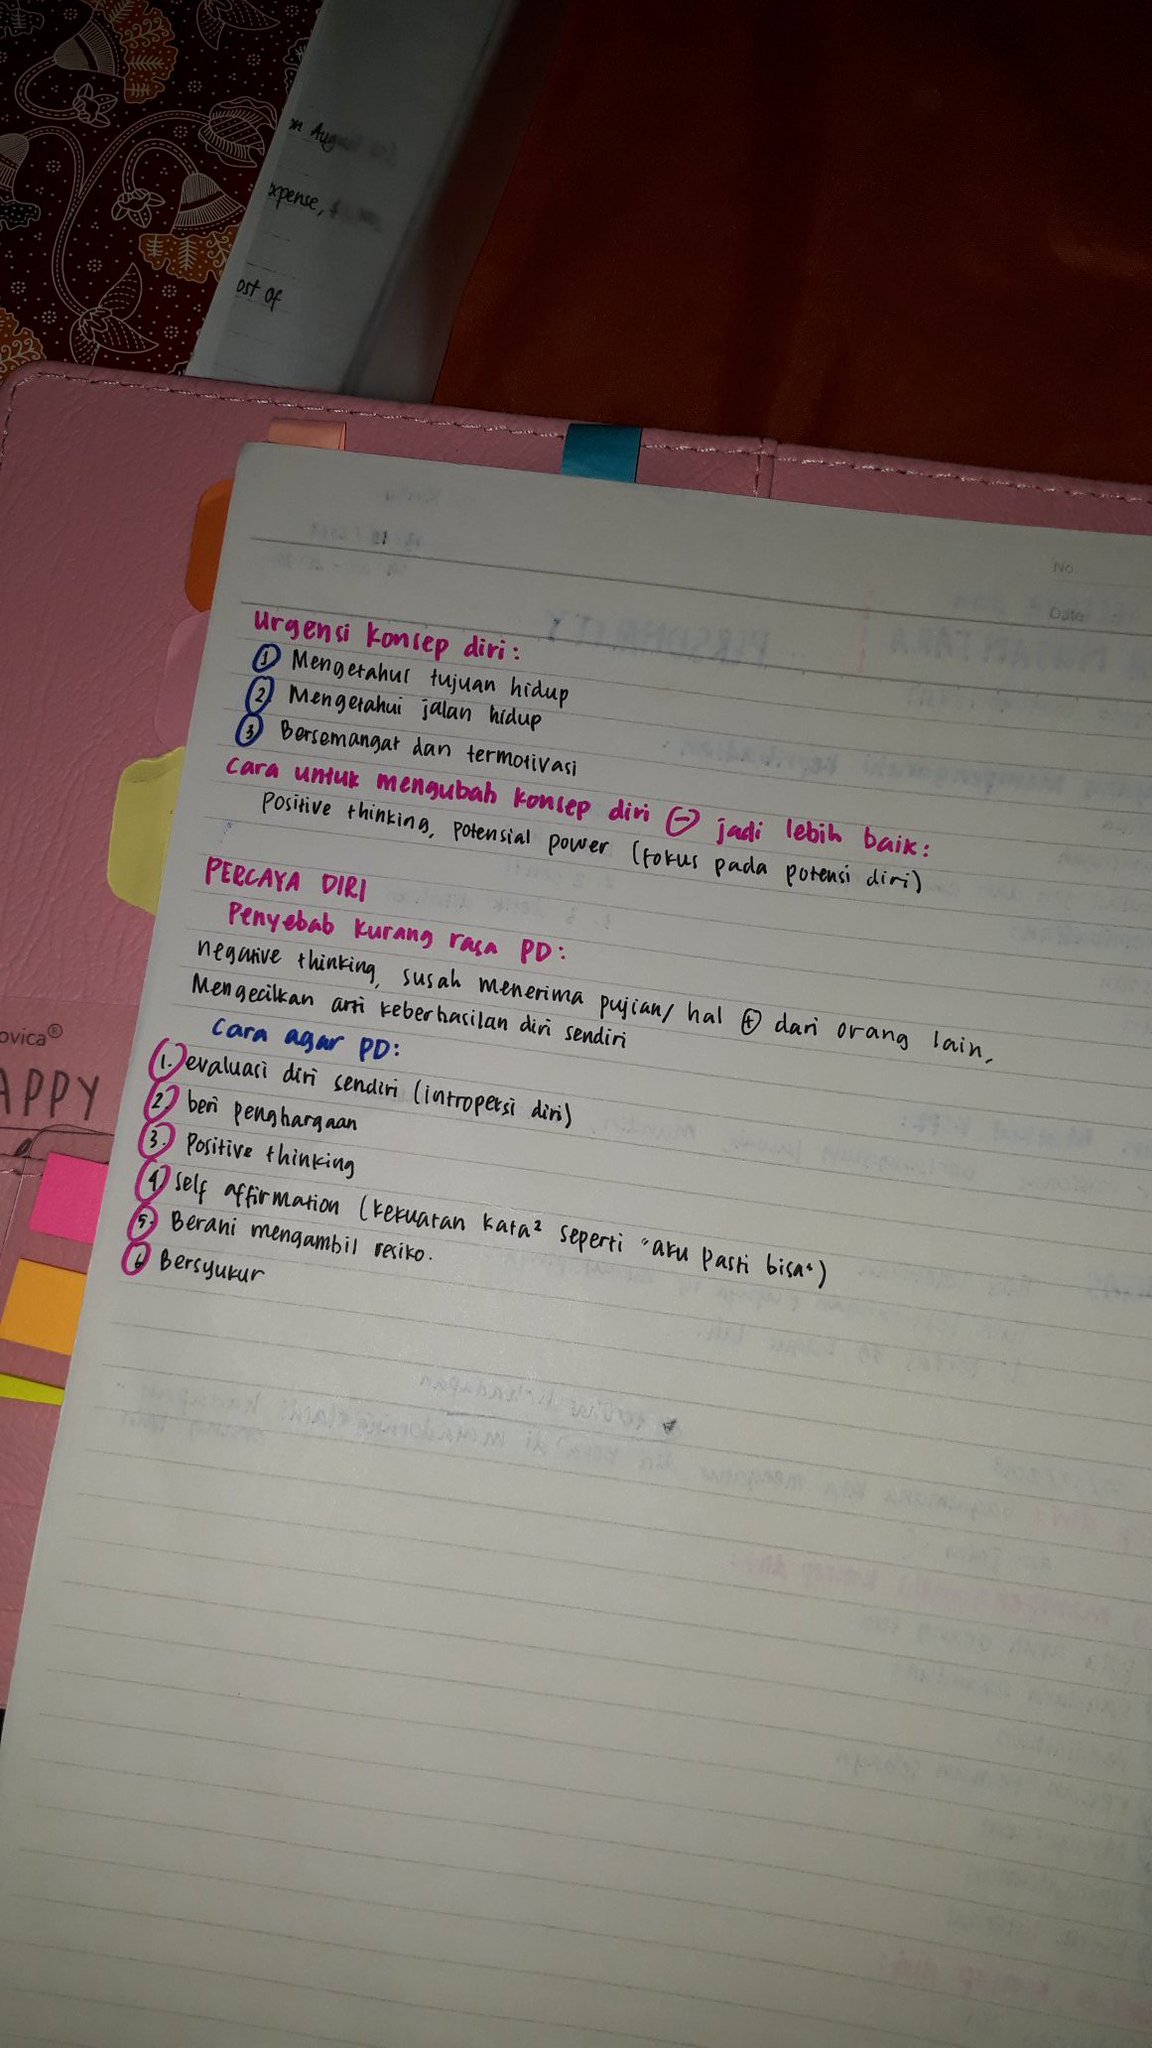 m Augu
xpense,
ost of
No.
Date
PERSONALITY
Urgensi konsep diri:
1 Mengetahui tujuan hidup
2 Mengetahui jalan hidup
3 Bersemangat dan termotivasi
Cara untuk mengubah konsep diri ⊖ jadi lebih baik:
Positive thinking, potensial power (fokus pada potensi diri)
PERCAYA DIRI
Penyebab kurang rasa PD:
negative thinking, susah menerima pujian/ hal ⊕ dari orang lain,
Mengecilkan arti keberhasilan diri sendiri
Cara agar PD:
1. evaluasi diri sendiri (intropeksi diri)
2. beri penghargaan
3. Positive thinking
4 Self affirmation (kekuatan kata² seperti "aku pasti bisa")
5. Berani mengambil resiko.
6 Bersyukur
ovica®
APPY